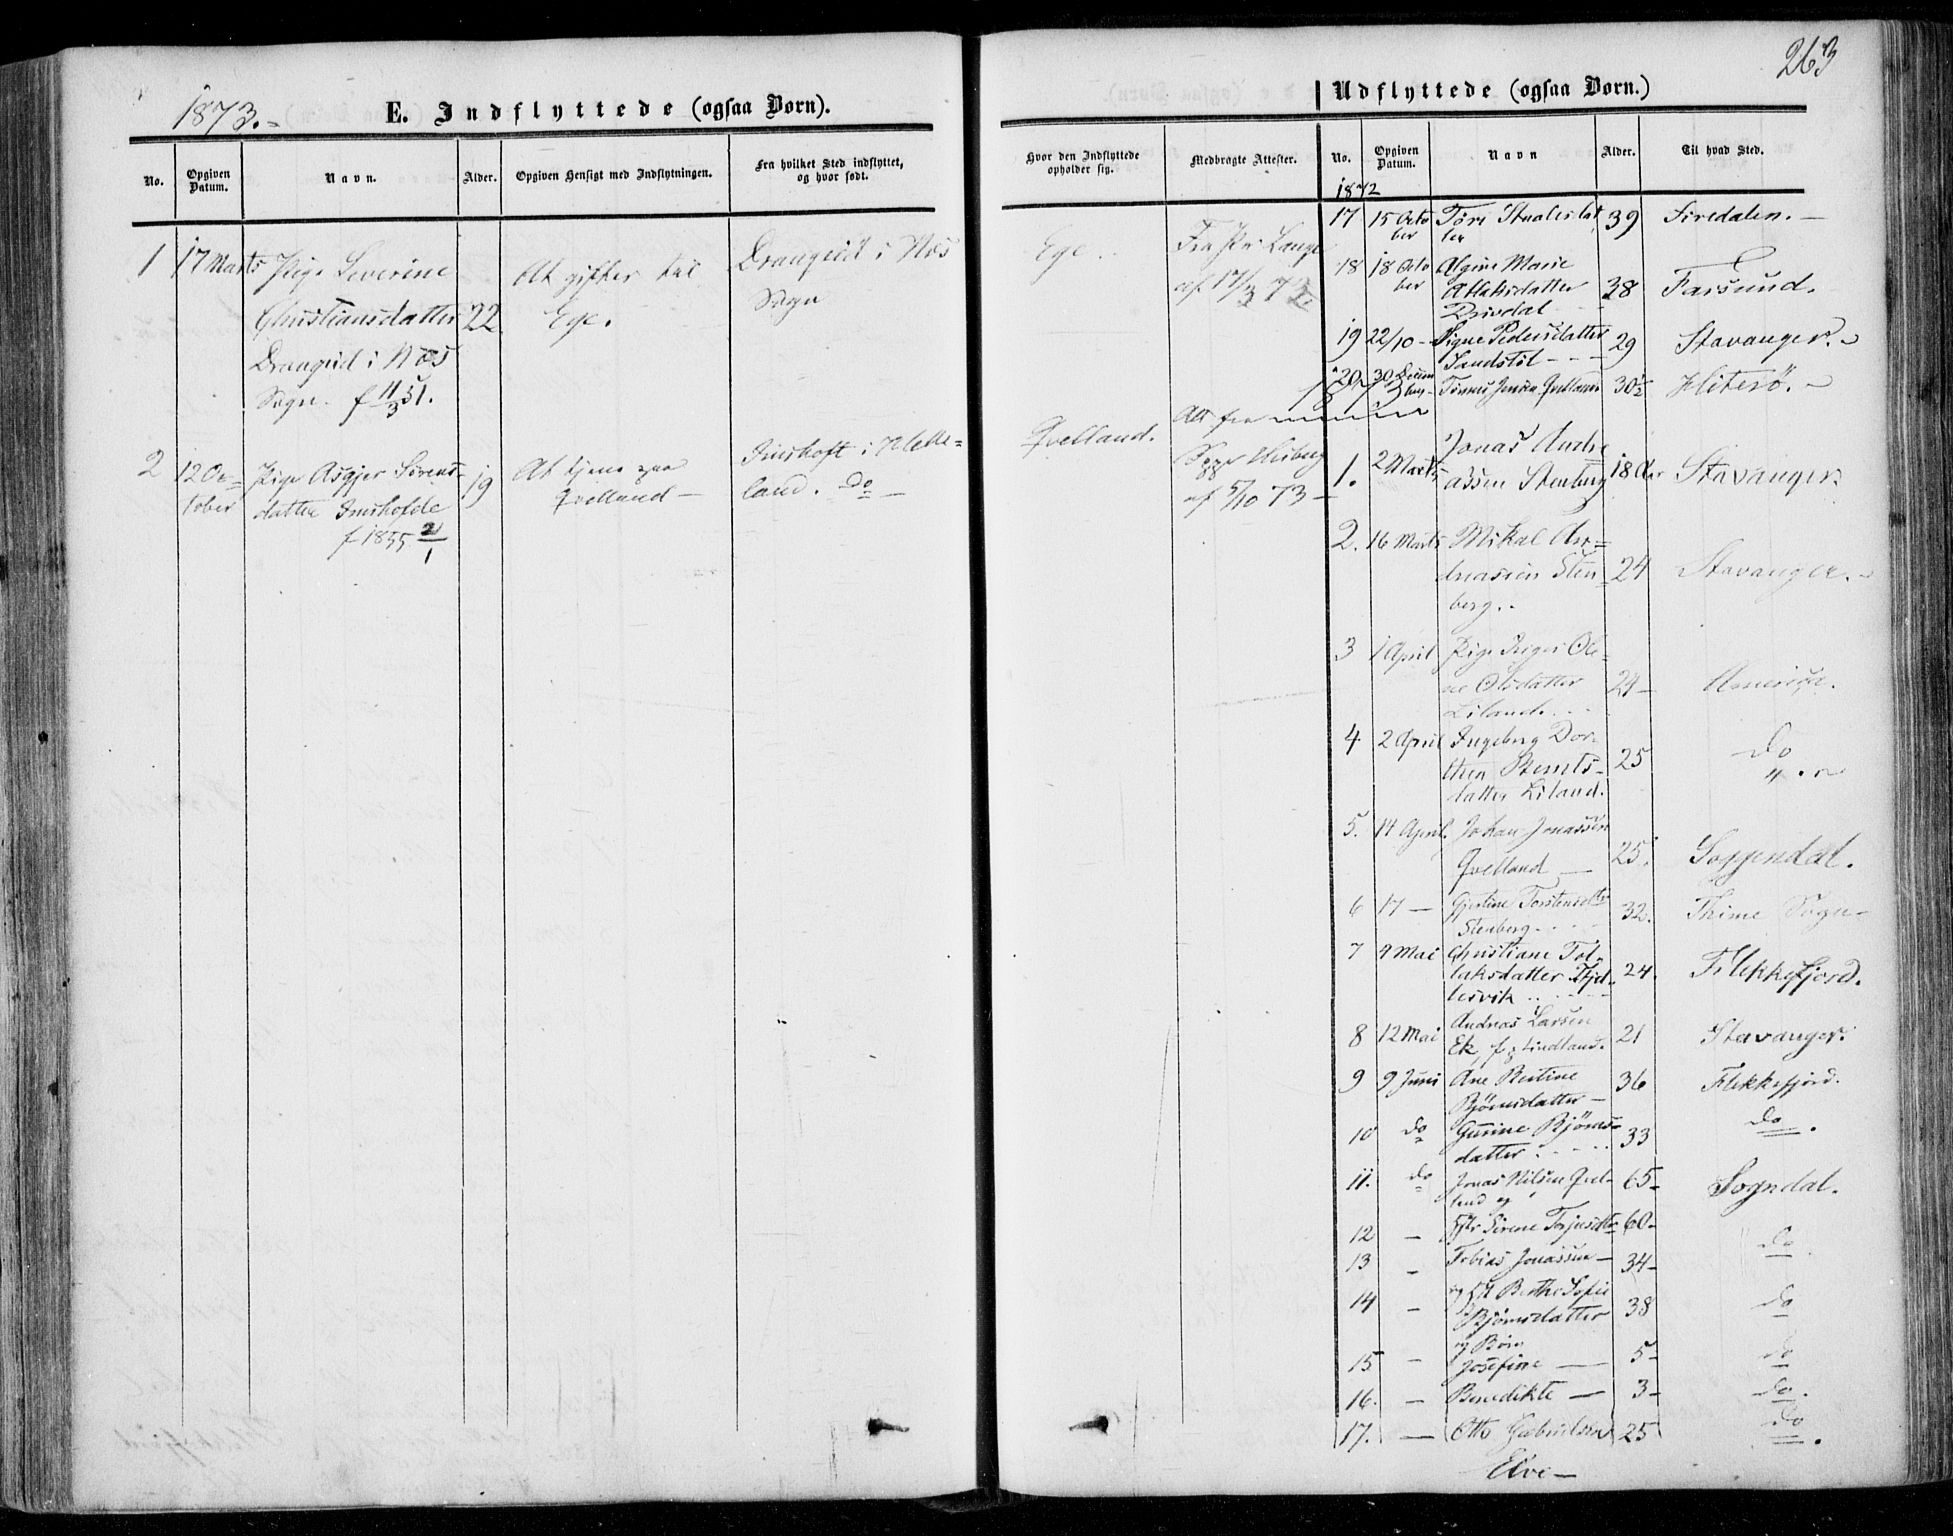 1873.-
E. Indflyttede (ogsaa Børn).
No.
Opgiven Datum.
Navn.
Alder.
Opgiven Hensigt med Indflytningen.
Fra hvilket Sted indflyttet, og hvor født.
1 17 Marts Pige Severine
Christiansdatter 22
Drangeid i Næs
Sogn. f 11/3 51.
At giftes til
Ege.
Drangeid i Næs
Sogn
2 12 Oc=
tober
Pige Asgjer Sørens-
datter
f 1855 2/1
19
At tjene paa
Qvelland —
land. Do —
263
Udflyttede (ogsaa Børn.)
Hvor den Indflyttede opholder sig.
Medbragte Attester.
No.
Opgiven Datum.
Navn
Alder.
Til hvad Sted.
Ege.
Fra Pr. Lange
af 17/3 73
Qvelland.
Att fra
af 5/10 73 —
1872
17 15 Octo
ber
39 Siredalen. —
18 18 Octo
ber
Marie
38 Farsund.
19 22/10 - Signe Pedersdatter
29 Stavanger. -
20 30 Decem
ber -
Tønnes Jensen Qvelland 30½ Hiterø. -
1873
1. 2 Marts Jonas Andre
assen Stenberg 18 Aar Stavanger.
2. 16 Marts Mikal An=
dreasen Sten
berg..
24 Stavanger. -
3 1 April Pige Inger Ole-
ne Olsdatter
Liland. . .
24 - America.
4. 2 April Ingeborg Dor-
thea Berents-
datter Liland.
25 Do
5. 14 April. Johan Jonassen
Qvelland —
25. Soggendal.
6 17 — Gjertine Torstensdtr
Stenberg. . . .
32. Thime Sogn -
7 4 Mai Christiane Tol-
laksdatter
24. Flekkefjord.
8 12 Mai Andreas Larsen
Ek, f. p. Lindland.
21 Stavanger.
9 9 Juni Ane Bertine
Bjørnsdatter —
36 Flekkefjord.
10 Do Gurine Bjørns-
datter . . . .
33 Do.
11. Do Jonas Nilsen Qvel-
land og
65- Sogndal.
12 — Sirene Torjusdtr 60-
Do
13 - Tobias Jonassen — 34-
14 - og Berthe Sofie
Bjørnsdatter
38 Do
og Børn
15 - Josefine — 5- Do
16. — Benedikte — 3- Do.
17. — Otto Gabrielsen 25 Do.
Elve —